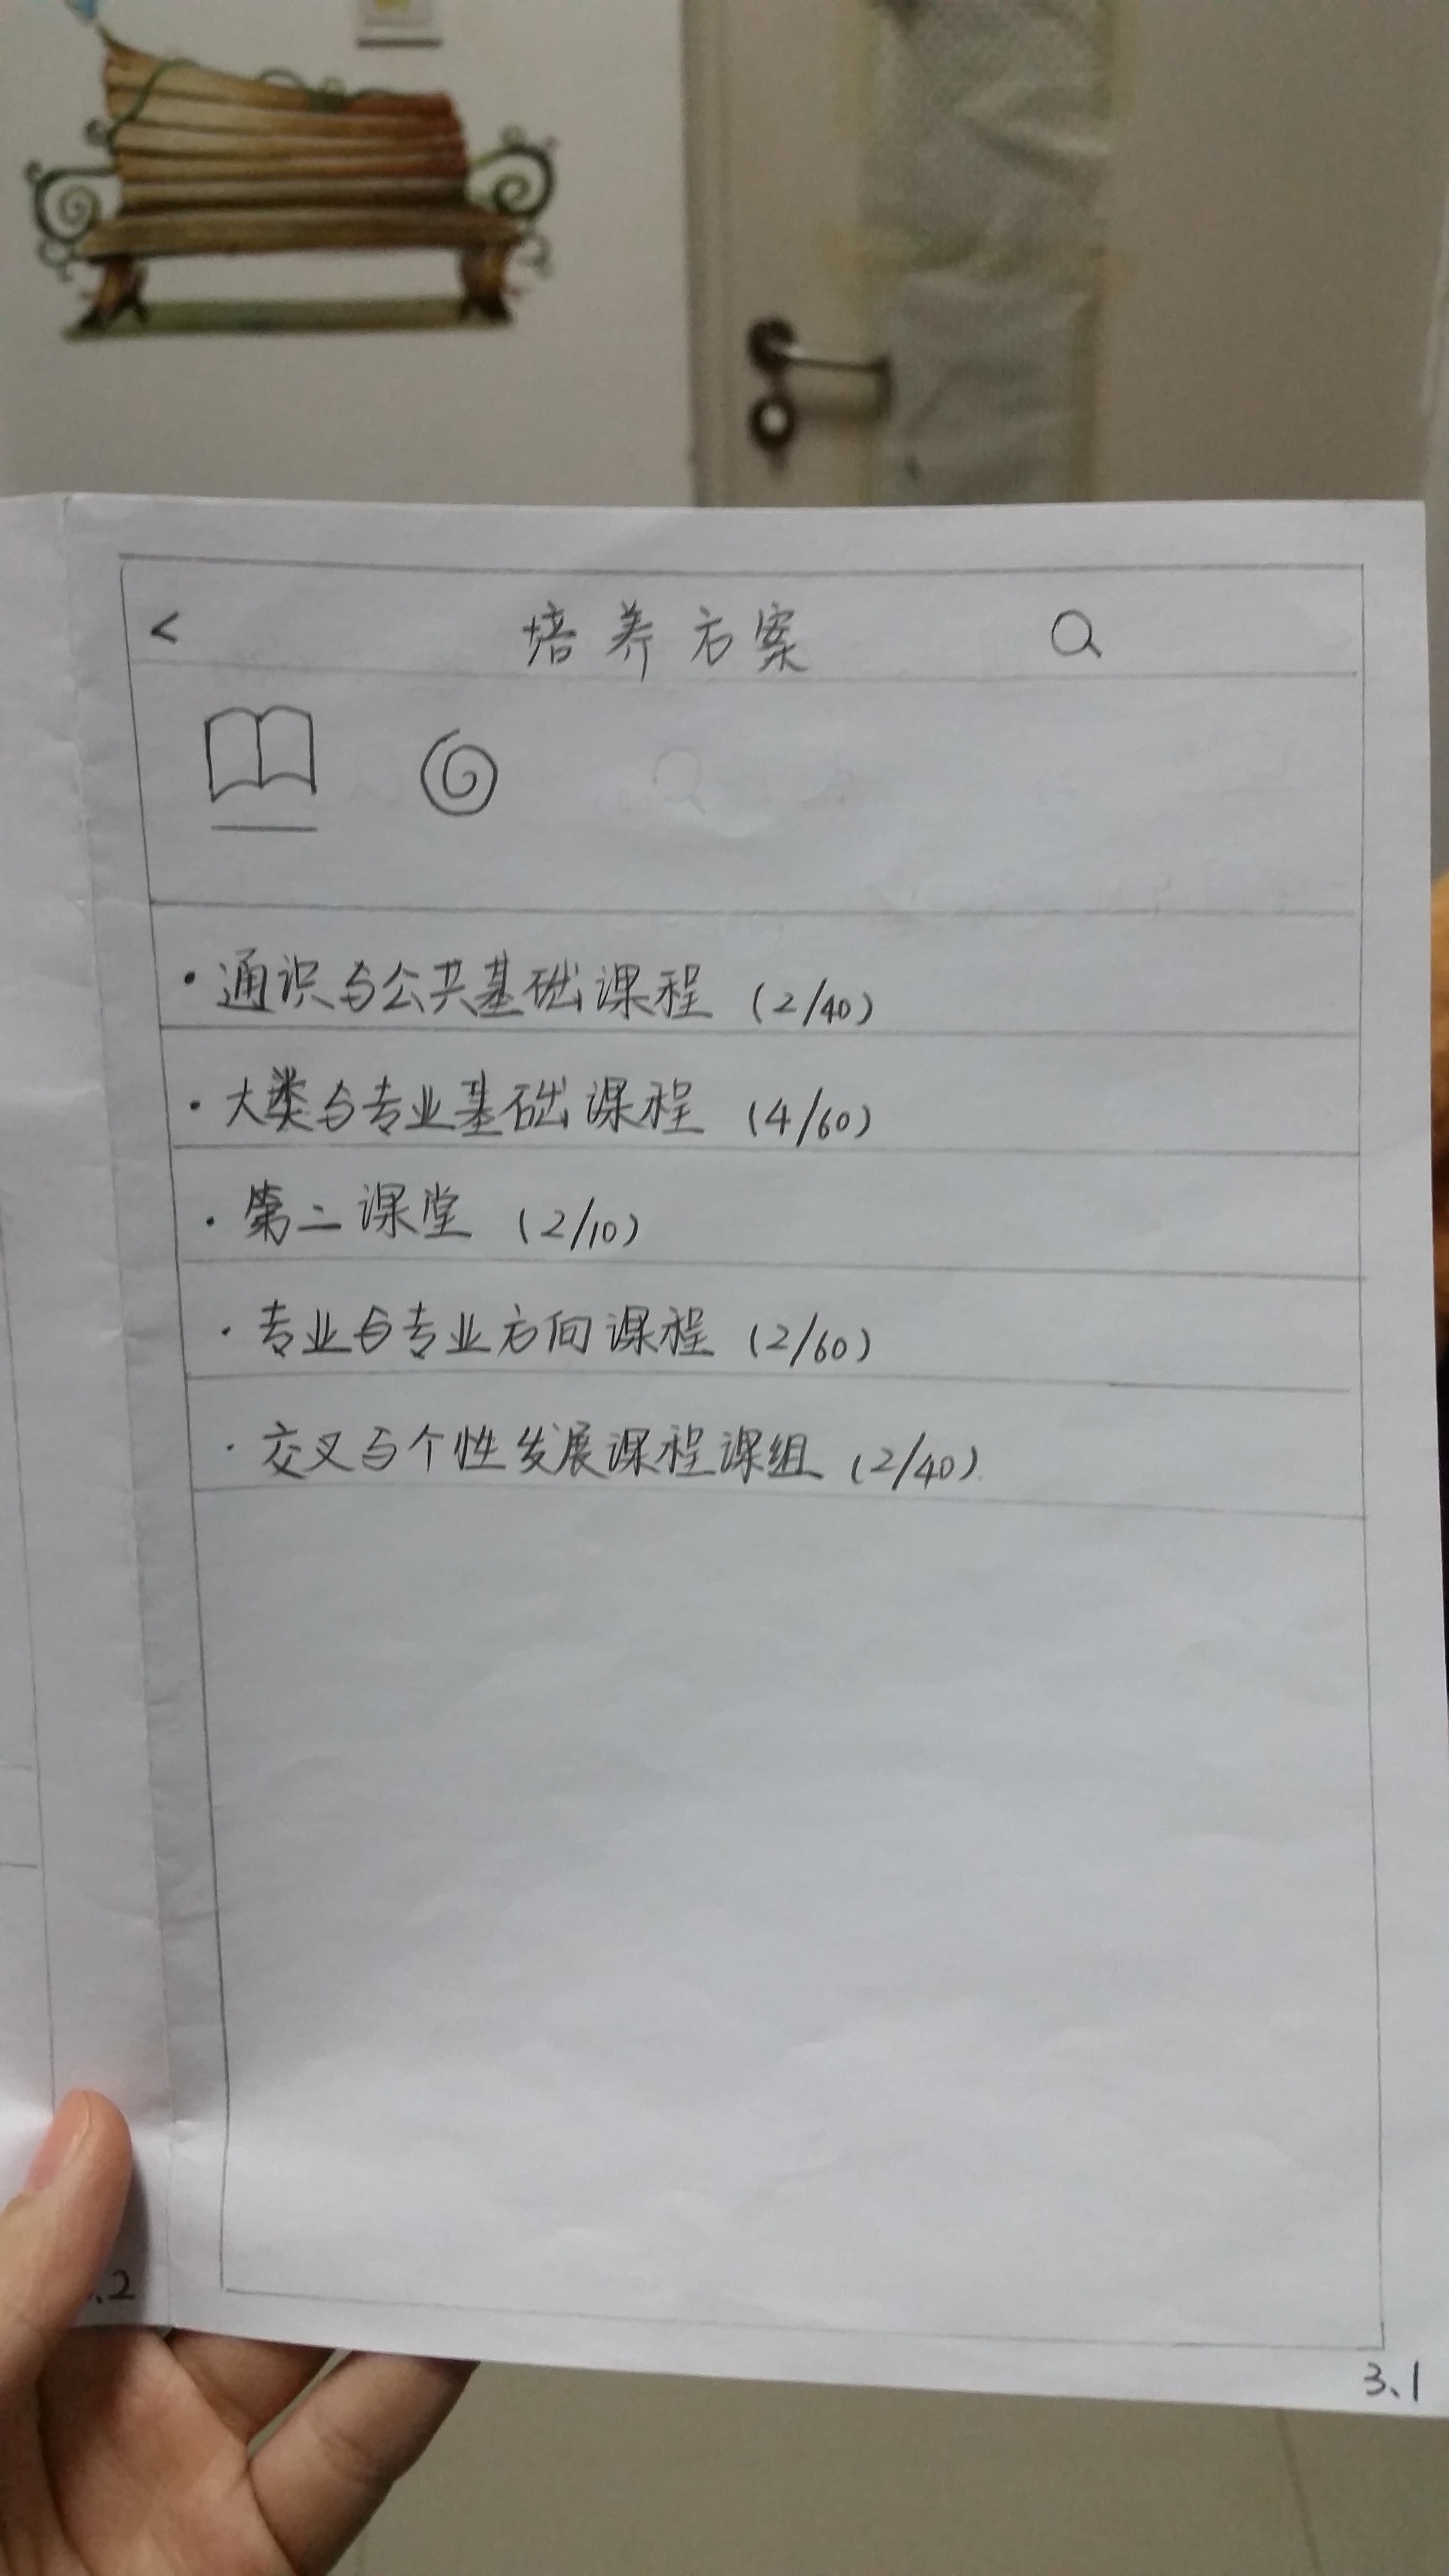 < 培养方案
·通识与公共基础课程 (2/40)
·大类与专业基础课程 (4/60)
·第二课堂 (2/10)
·专业与专业方向课程 (2/60)
·交叉与个性发展课程课组 (2/40)
.2
3.1